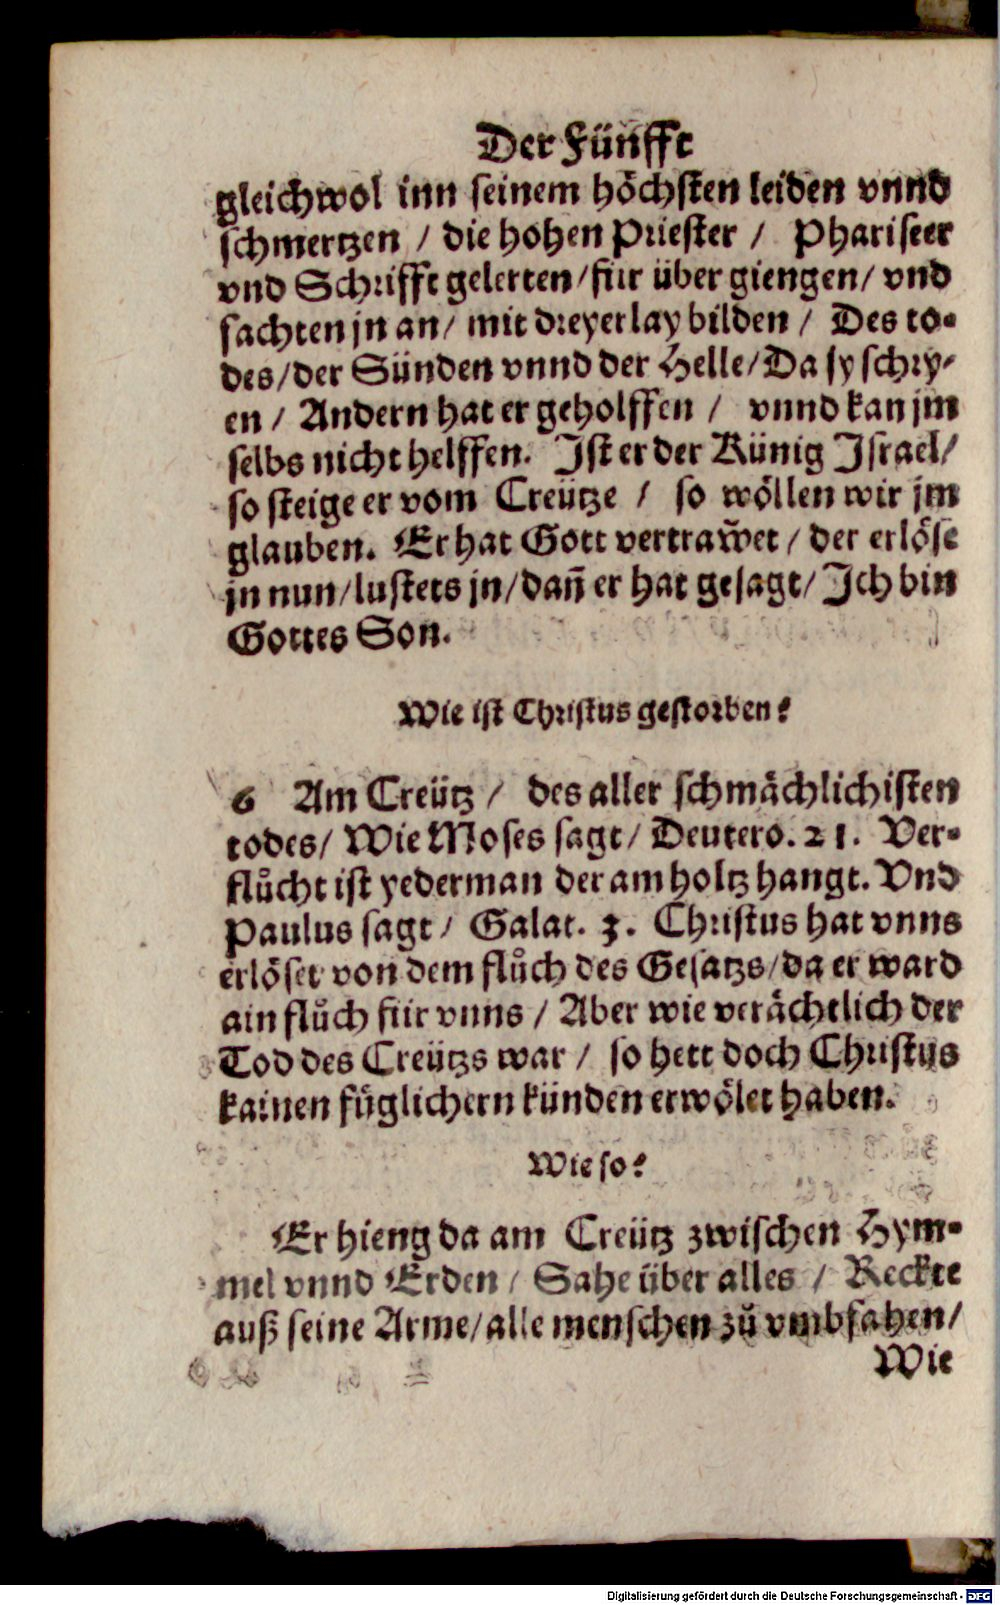 Der Fünfft
gleichwol inn seinem höchsten leiden vnnd
schmertzen / die hohen Priester / Phariseer
vnd Schrifft gelerten / für über giengen / vnd
sachten jn an / mit dreyerlay bilden / Des to-
des / der Sünden vnnd der Helle / Da sy schry-
en / Andern hat er geholffen / vnnd kan jm
selbs nicht helffen. Ist er der Künig Israel /
so steige er vom Creütze / so wöllen wir jm
glauben. Er hat Gott vertraw̃et / der erlöse
jn nun / lustets jn / dañ er hat gesagt / Ich bin
Gottes Son.
Wie ist Christus gestorben?
6 Am Creütz / des aller schmächlichisten
todes / Wie Moses sagt / Deutero. 21. Ver-
flůcht ist yederman der am holtz hangt. Vnd
Paulus sagt / Galat. 3. Christus hat vnns
erlöset von dem flůch des Gesatzs / da er ward
ain flůch für vnns / Aber wie verächtlich der
Tod des Creützs war / so hett doch Christus
kainen füglichern künden erwölet haben.
Wie so?
Er hieng da am Creütz zwischen Hym-
mel vnnd Erden / Sahe über alles / Reckte
auß seine Arme / alle menschen zů vmbfahen /
Wie
Digitalisierung gefördert durch die Deutsche Forschungsgemeinschaft - DFG